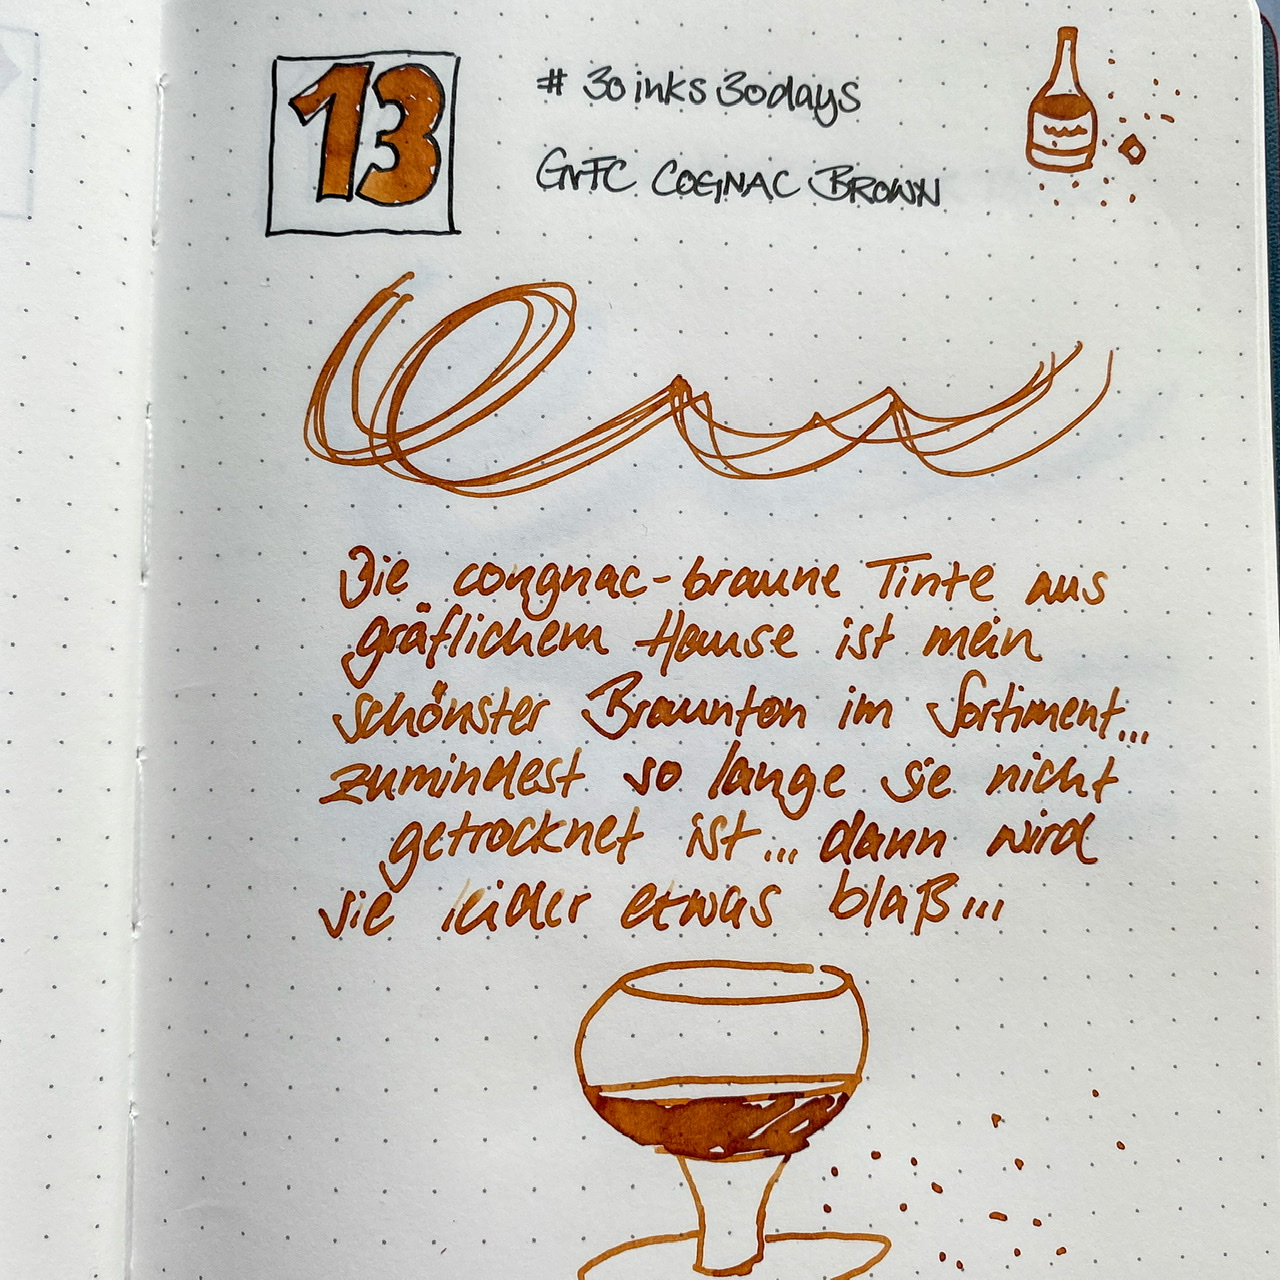 13
# 30inks30days
GvFC COGNAC BROWN
Die congnac-braune Tinte aus
gräflichem Hause ist mein
schönster Braunton im Sortiment...
zumindest so lange sie nicht
getrocknet ist... dann wird
sie leider etwas blaß...